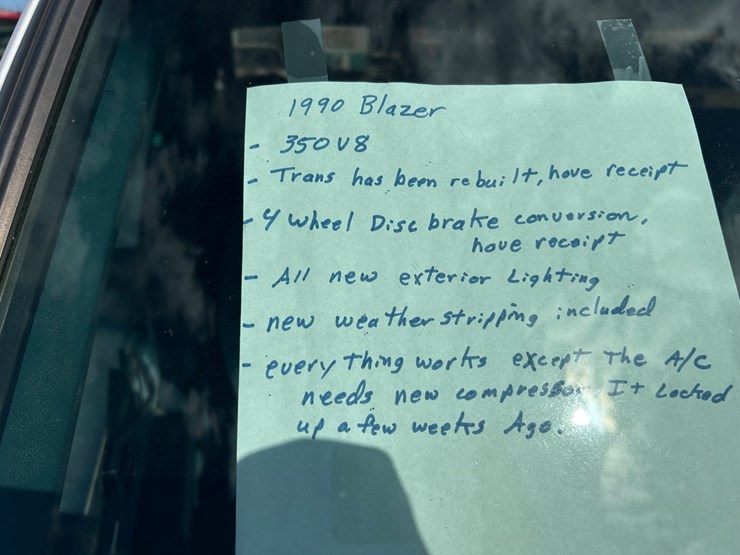 1990 Blazer
- 350 V8
- Trans has been rebuilt, have receipt
- 4 wheel Disc brake conversion,
have receipt
- All new exterior Lighting
- new weather stripping included
- every thing works except The A/C
needs new compressor It Locked
up a few weeks Ago.